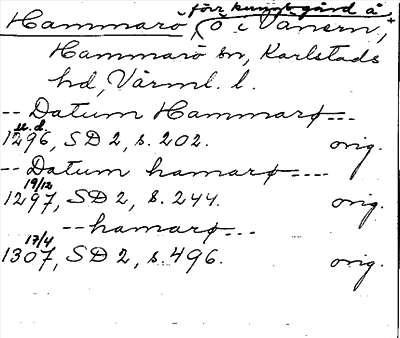 förr kungsgård å
Hammarö, ö i Vänern,
Hammarö sn, Karlstads
hd, Värml. l.
-- Datum Hammarø---
u.d.
1296, SD 2, s. 202. orig.
-- Datum hamarø---
19/12
1297, SD 2, s. 244. orig.
-- hamarø---
17/4
1307, SD 2, s. 496. orig.